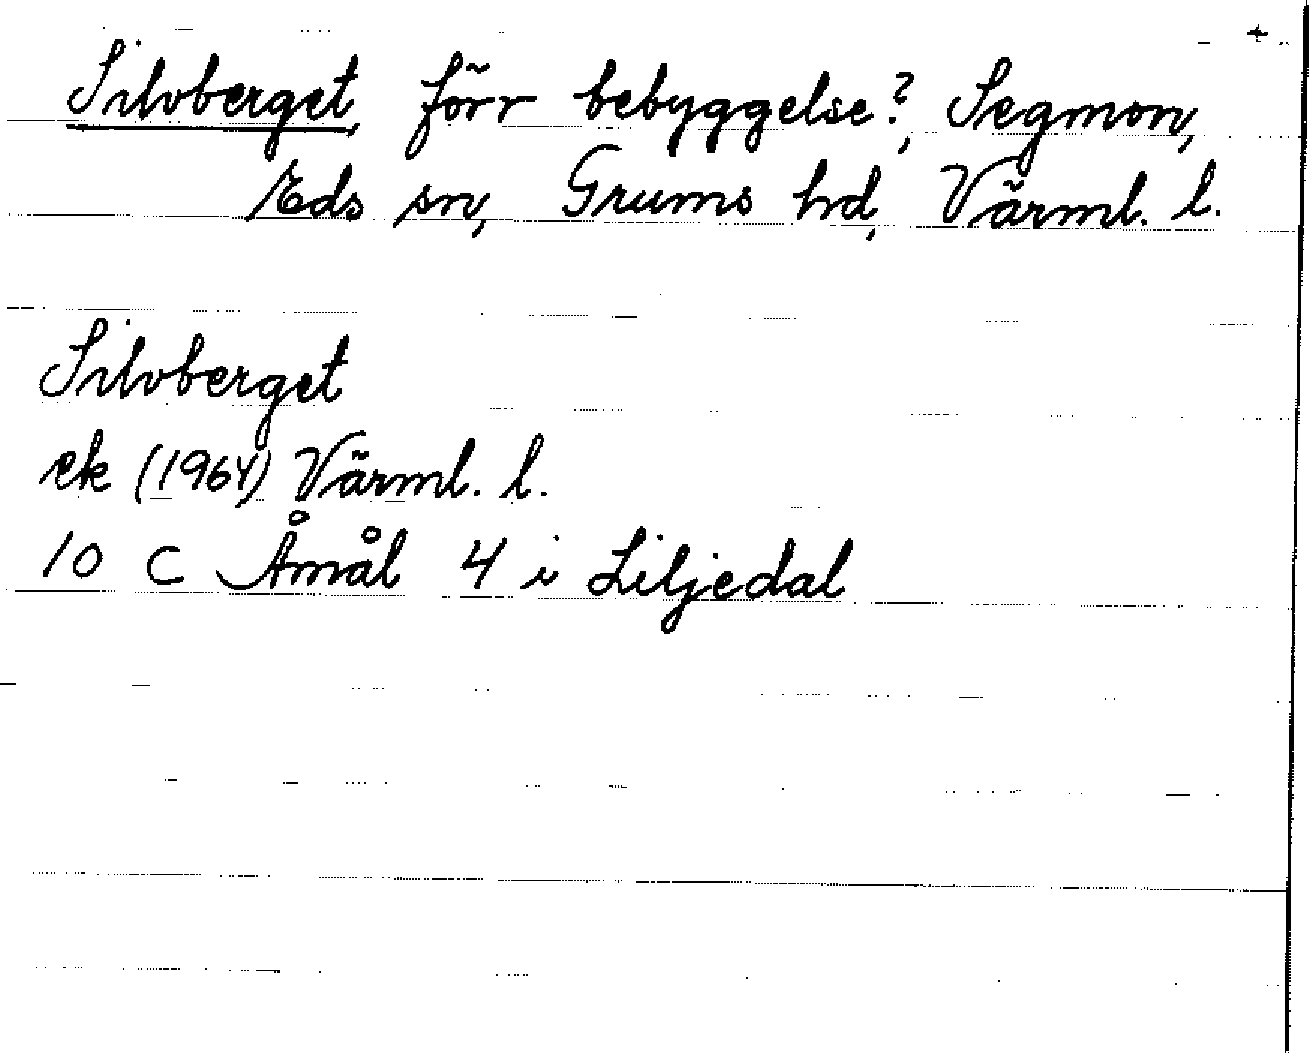 +
Silvberget, förr bebyggelse?, Segmon,
Eds sn, Grums hd, Värml. l.
Silvberget
ek (1964) Värml. l.
10 C Åmål 4 i Liljedal